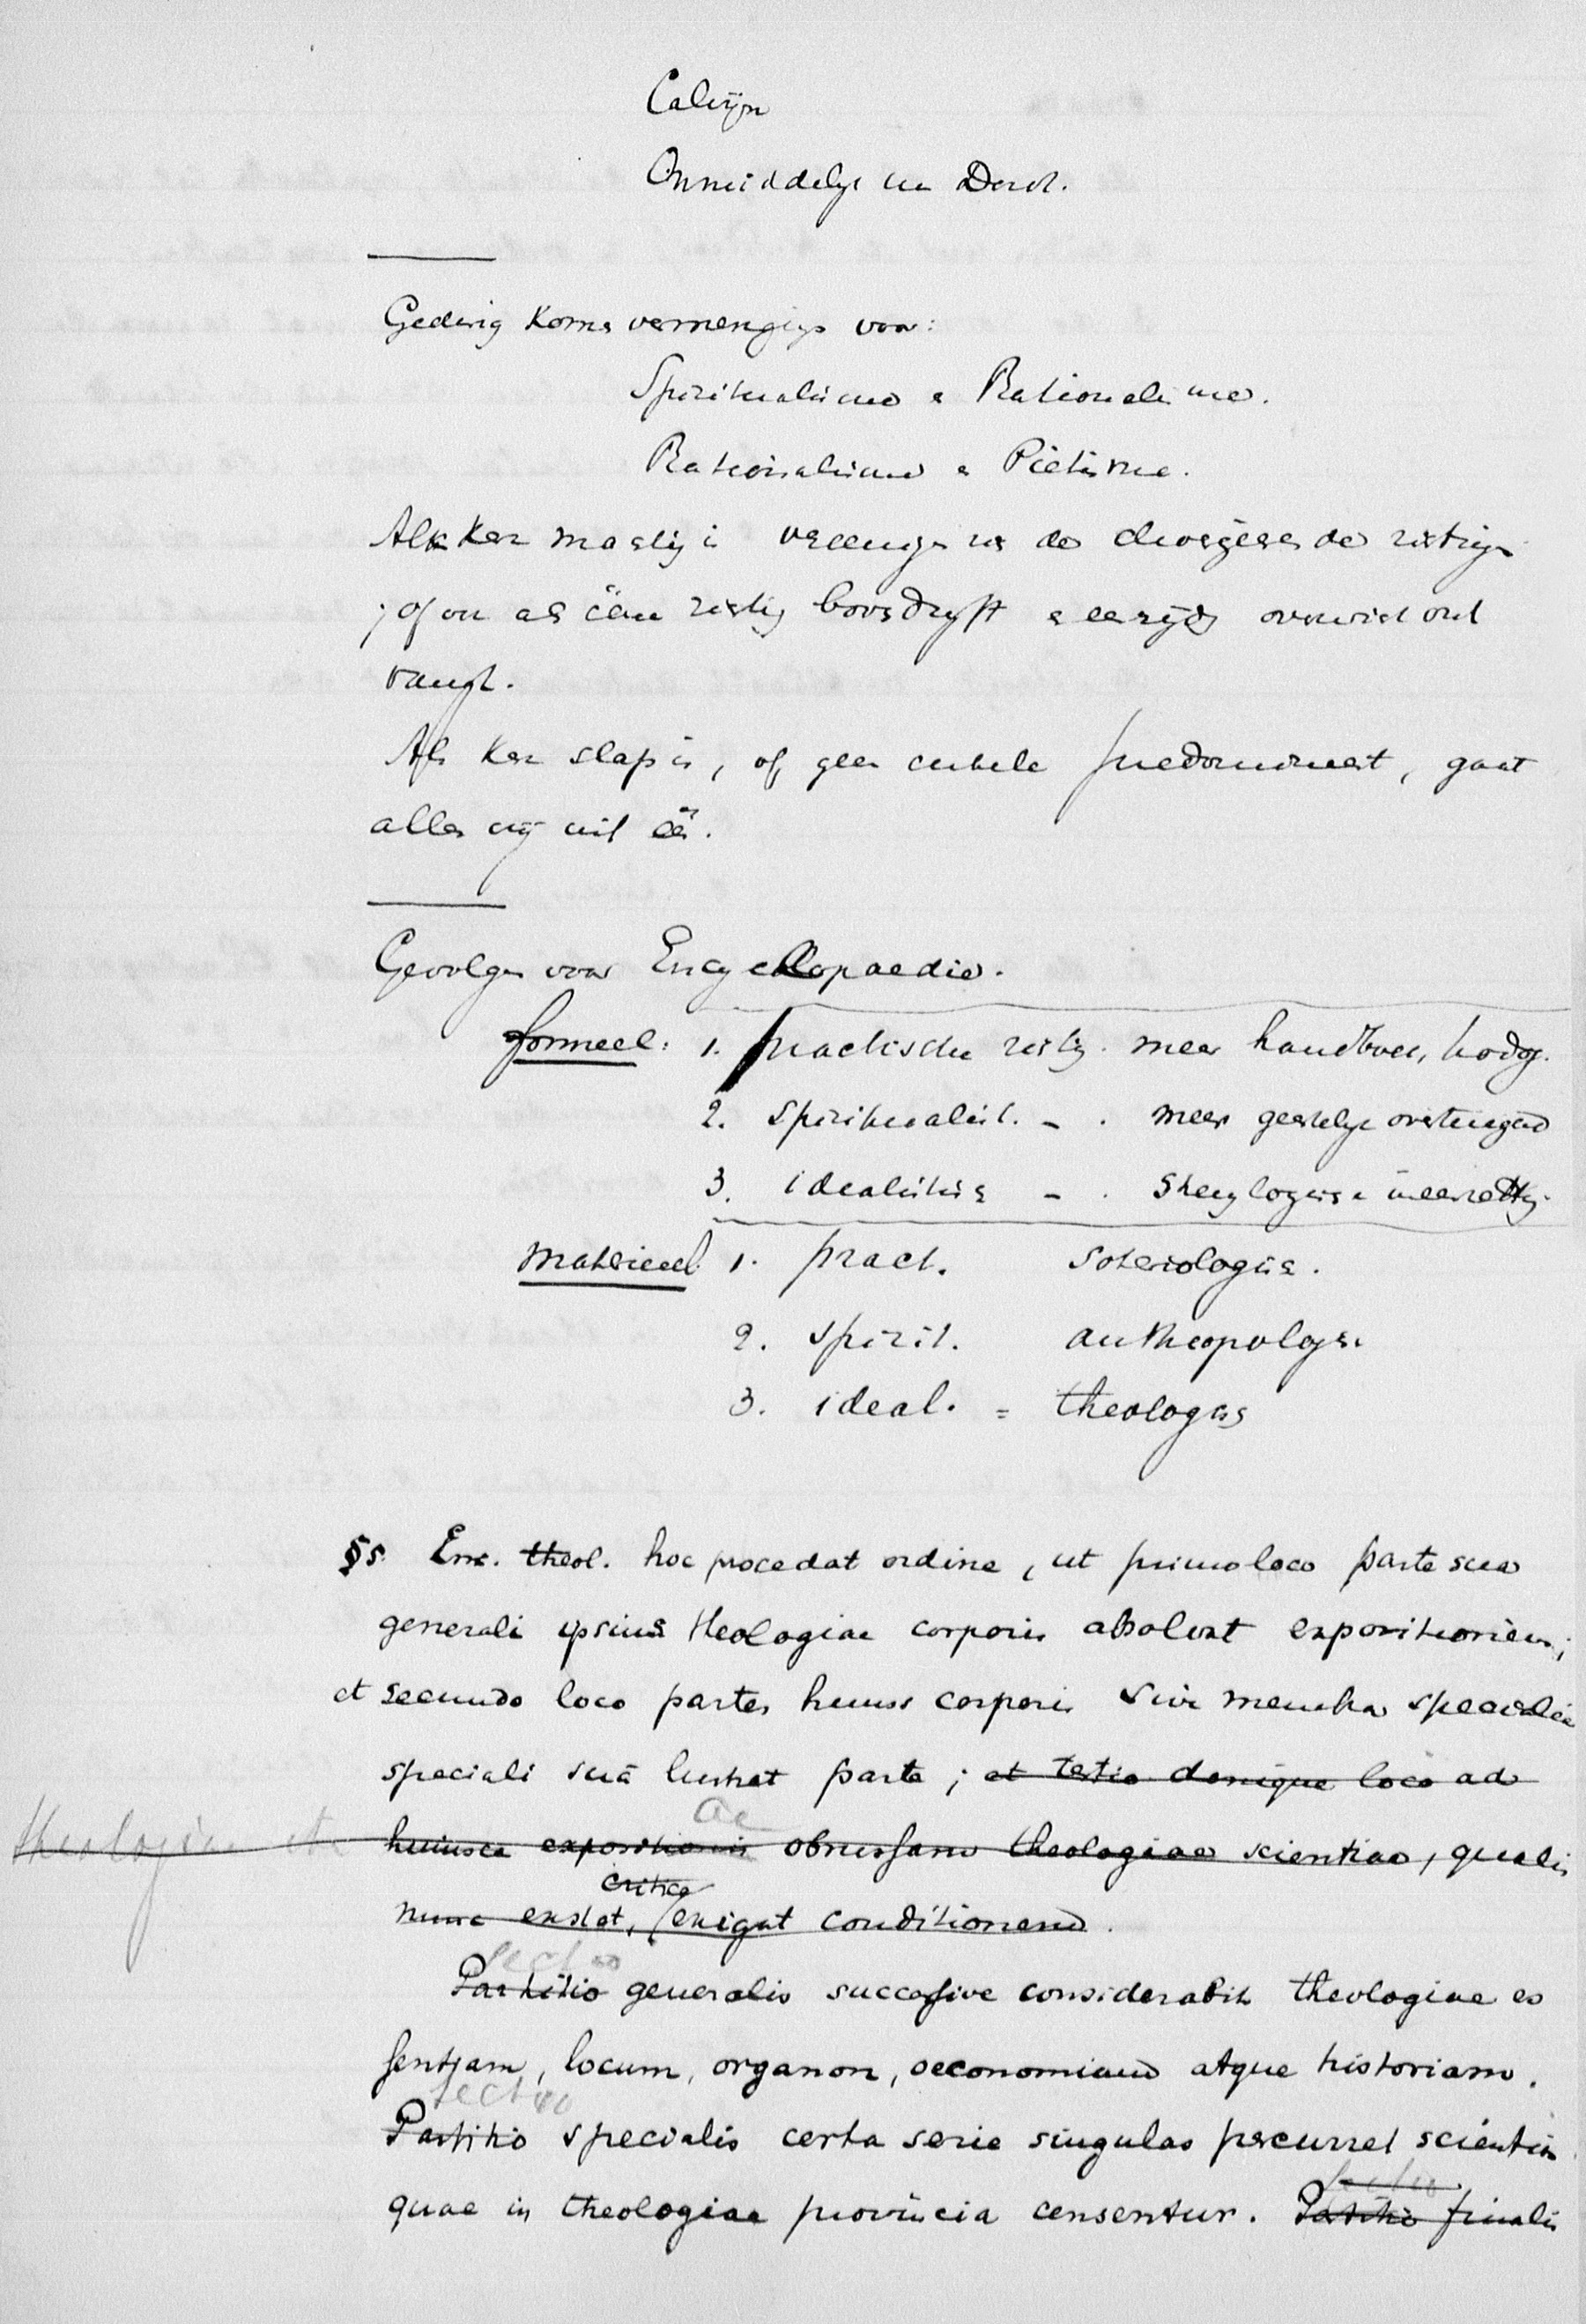 Calvijn
Onmiddelijk
Gedurig komen vermengings voor:
Spiritualisme & Rationalisme.
Rationalisme & Pietisme.
Als Kerk machtig is de
of één richting bovendrijft & overwicht ont
vangt.
Als Kerk slap is, of geen enkele predomineert, gaat
alles uit één.
Gevolgen voor Encyclopaedie.
formeel: 1. practische richtg. meer handboek, hodog.
2. spiritualist. - . meer geestelijke overtuigend
3. idealistise - . streng logise
materieel 1. pract. soteriologise.
2. spirit. anthropologise
3. ideal. = theologise
§5. Enc. theol. hoc procedat ordine, ut primo loco parte sua
generali ipsius theologiae corporis absolvat expositionem;
et secundo loco partes huius corporis sive membra specialia
speciali suâ lustret parte; et tertio denique loco ad
ac
theologiae et huiusce expositionis obrussam theologiae scientiae, qualis
critica
nunc exstat, exigat conditionem.
Sectio
Partitio generalis successive considerabit theologiae es
sentiam, locum, organon, oeconomiam atque historiam.
Sectio
Partitio specialis certa serie singulas percurret scientias
Sectio
quae in theologiae provincia censentur. Partitio finalis